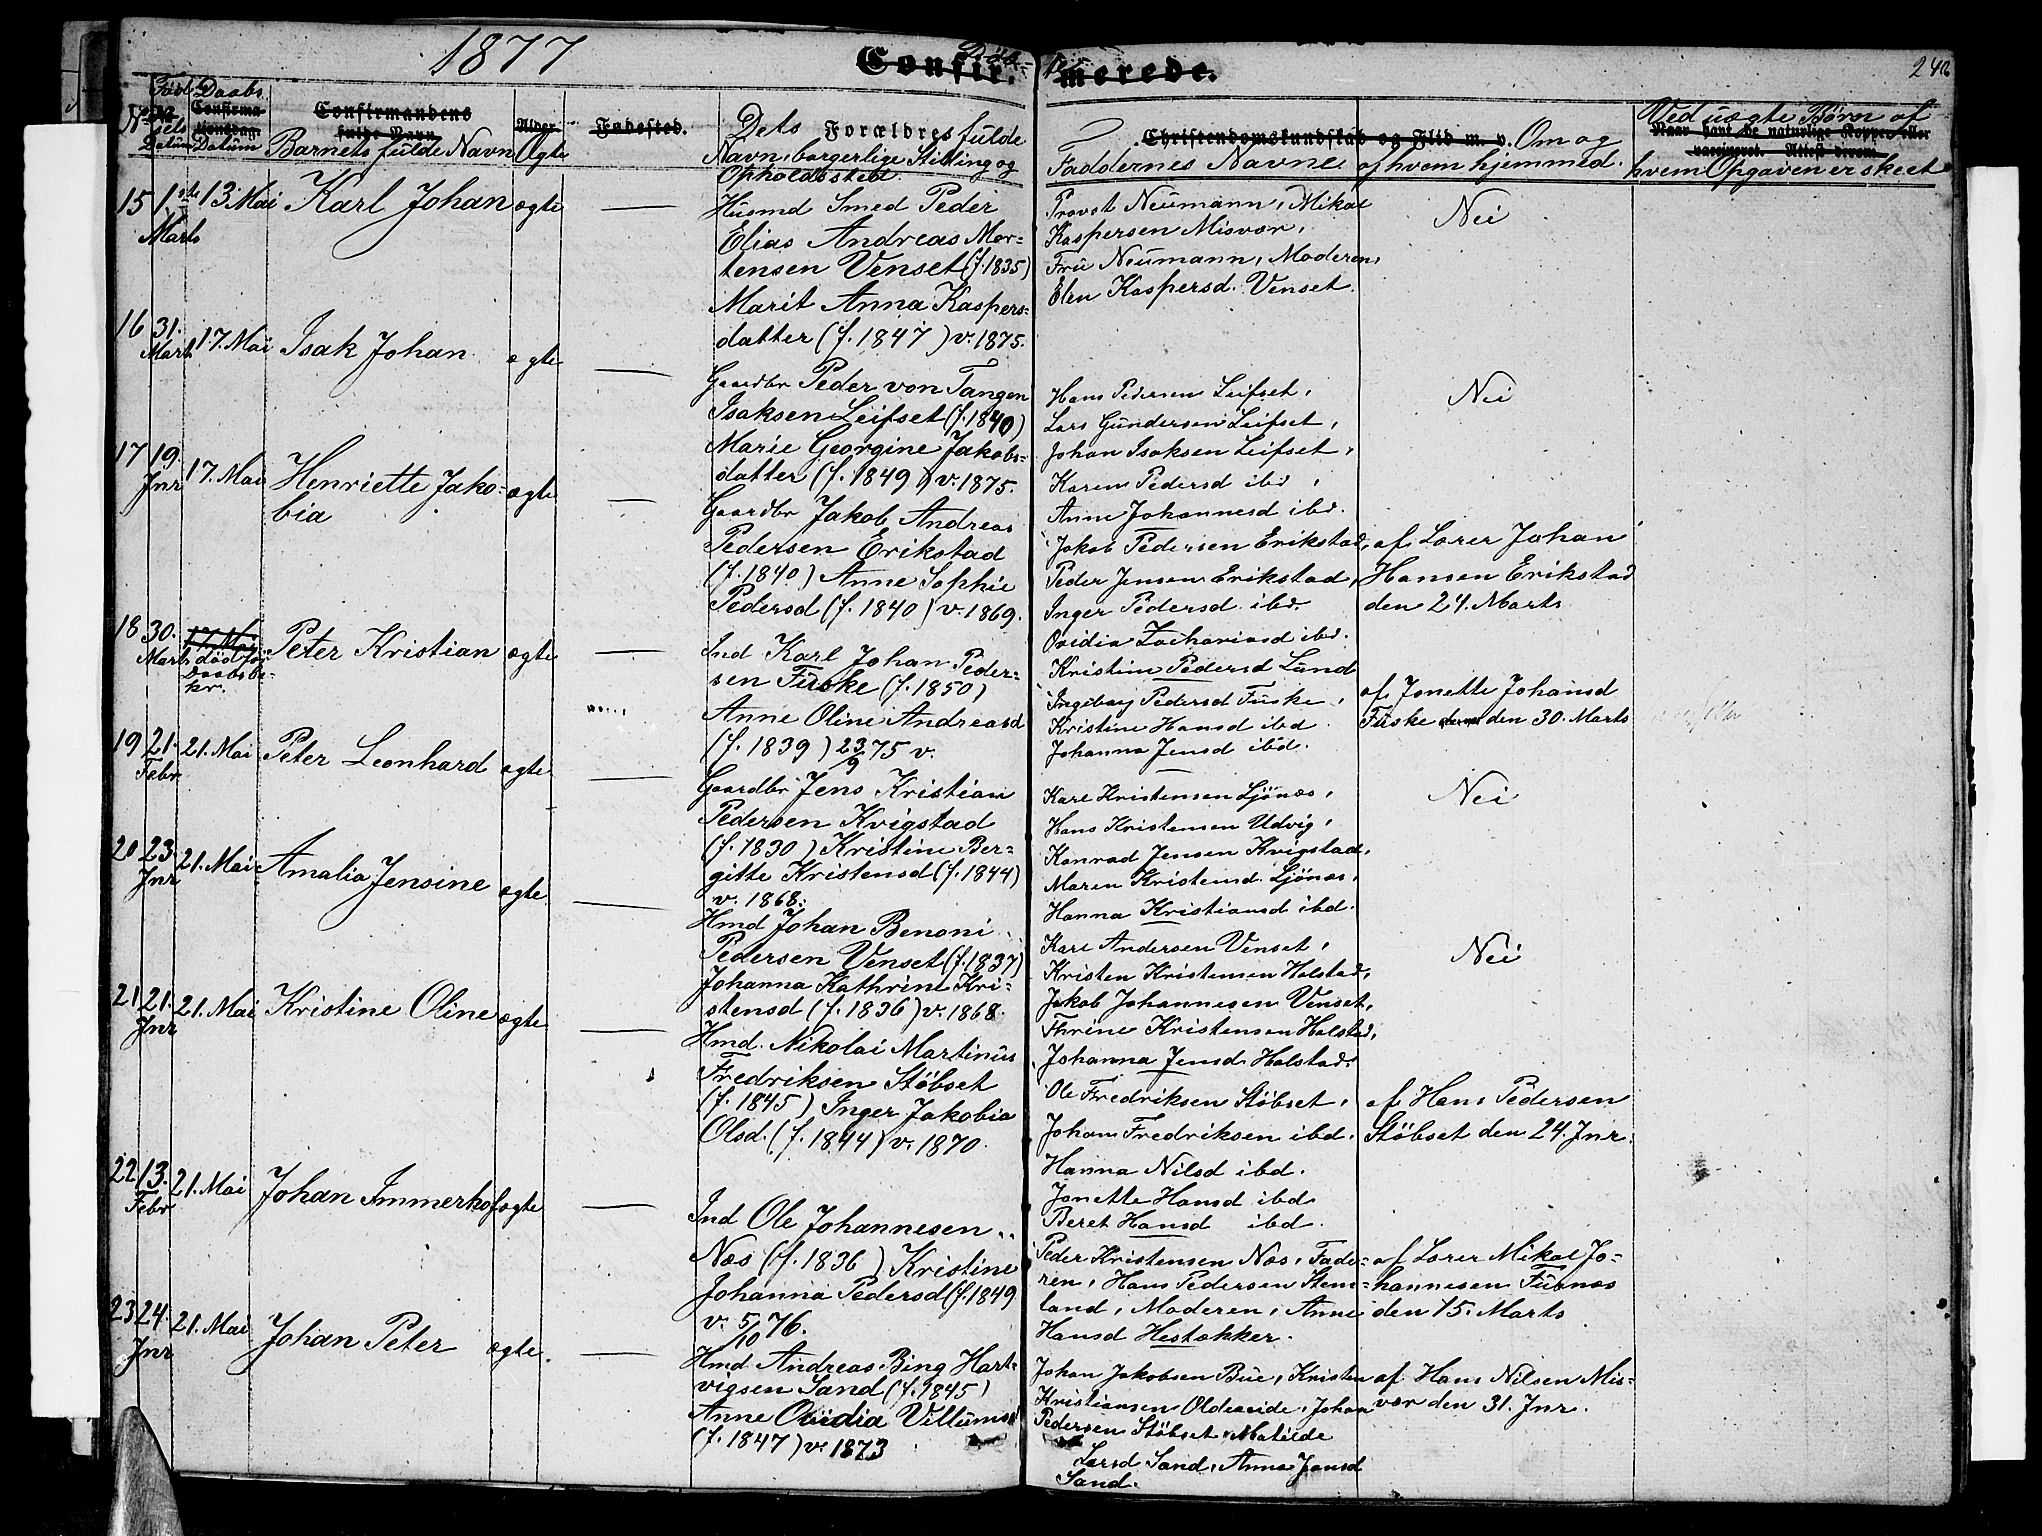 1877
Confir-
merede.
Fød
Daabs
Confirmandens
fulde Navn
Alder
Fødested.
Datum
Datum
Barnets fulde Navn
Ægte
Dets Forældres fulde
Navn, borgerlige Stilling og
Opholdssted
Christendomskundskab og Flid m. v. Om og
Faddernes Navne
af hvem hjemmed.
Ved uægte Børn af
hvem Opgaven er skeet
15 1ste Marts 13. Mai Karl Johan ægte
Husmd Smed Peder
Elias Andreas Mor-
tensen Venset (f. 1835)
Marit Anna Kaspers-
datter (f. 1847) v. 1875.
Provst Neumann, Mikal
Kaspersen Misvær,
Fru Neumann, Moderen,
Elen Kaspersd. Venset.
Nei
16 31. Marts 17. Mai Isak Johan ægte
Gaardbr Peder von Tangen
Isaksen Leifset (f. 1840)
Marie Georgine Jakobs-
datter (f. 1849) v. 1875.
Hans Pedersen Leifset,
Lars Gundersen Leifset,
Johan Isaksen Leifset,
Karen Pedersd ibd,
Anne Johannesd ibd.
Nei
17 19. Jnr 17. Mai Henriette Jako-
bia ægte
Gaardbr Jakob Andreas
Pedersen Erikstad
(f. 1840) Anne Sophie
Pedersd (f. 1840) v. 1869.
Jakob Pedersen Erikstad,
Peder Jensen Erikstad,
Inger Pedersd ibd.
Ovidia Zachariasd ibd.
Kristine Pedersd Lund
af Lærer Johan
Hansen Erikstad
den 24. Marts
18 30. Marts 17. Mai død før
Daabsbe-
kr. Peter Kristian ægte
Ind Karl Johan Peder-
sen Fuske (f. 1850)
Anne Oline Andreasd
(f. 1839) 23/9 75 v.
Ingeborg Pedersd Fuske,
Kristine Hansd ibd
Johanna Jensd ibd.
af Jonette Johansd
Fuske den 30. Marts
19 21. Febr 21. Mai Peter Leonhard ægte
Gaardbr Jens Kristian
Pedersen Kvigstad
(f. 1830) Kristine Ber-
gitte Kristensd (f. 1844)
v. 1868.
Karl Kristensen Ljönæs,
Hans Kristensen Udvig,
Konrad Jensen Kvigstad,
Maren Kristensd Ljönæs,
Hanna Kristiansd ibd.
Nei
20 23. Jnr 21. Mai Amalia Jensine ægte
Hmd Johan Benoni
Pedersen Venset (f. 1837)
Johanna Kathrine Kri-
stensd (f. 1836) v. 1868.
Karl Andersen Venset,
Kristen Kristensen Holstad,
Jakob Johannesen Venset,
Thrine Kristensen Holstad,
Johanna Jensd Holstad.
Nei
21 21. Jnr 21. Mai Kristine Oline ægte
Hmd. Nikolai Martinus
Fredriksen Stöbset
(f. 1845) Inger Jakobia
Olsd. (f. 1844) v. 1870.
Ole Fredriksen Stöbset,
Johan Fredriksen ibd.
Hanna Nilsd ibd.
Jonette Hansd ibd
Beret Hansd ibd.
af Hans Pedersen
Stöbset den 24. Jnr.
22 13. Febr 21. Mai Johan Immerkof ægte
Ind Ole Johannesen
Næs (f. 1836) Kristine
Johanna Pedersd (f. 1849
v. 5/10 76.
Peder Kristensen Næs, Fade-
ren, Hans Pedersen Stem-
land, Moderen, Anne
Hansd Hestakker.
af Lærer Mikal Jo-
hannesen Fusnæs
den 15. Marts
23 24. Jnr 21. Mai Johan Peter ægte.
Hmd Andreas Bing Hart-
vigsen Sand (f. 1845)
Anne Ovidia Villumsd
(f. 1847) v. 1873
Johan Jakobsen Bue, Kristen
Kristiansen Oldereide, Johan
Pedersen Stöbset, Matilde
Larsd Sand, Anna Jonsd
Sand.
af Hans Nilsen Mis-
vær den 31. Jnr.